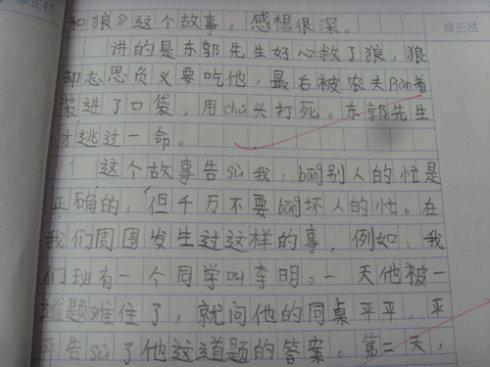 修正栏 修正栏
和狼》这个故事，感想很深。
讲的是东郭先生好心救了狼，狼
却忘恩负义要吃他，最后被农夫pàn着
装进了口袋，用chú头打死。东郭先生
才逃过一命。
这个故事告sù我：bāng别人的忙是
正确的，但千万不要bāng坏人的忙。在
我们周围发生过这样的事，例如：我
们班有一个同学叫李明。一天他被一
道题难住了，就问他的同桌平平，平
平告sù了他这道题的答案。第二天，